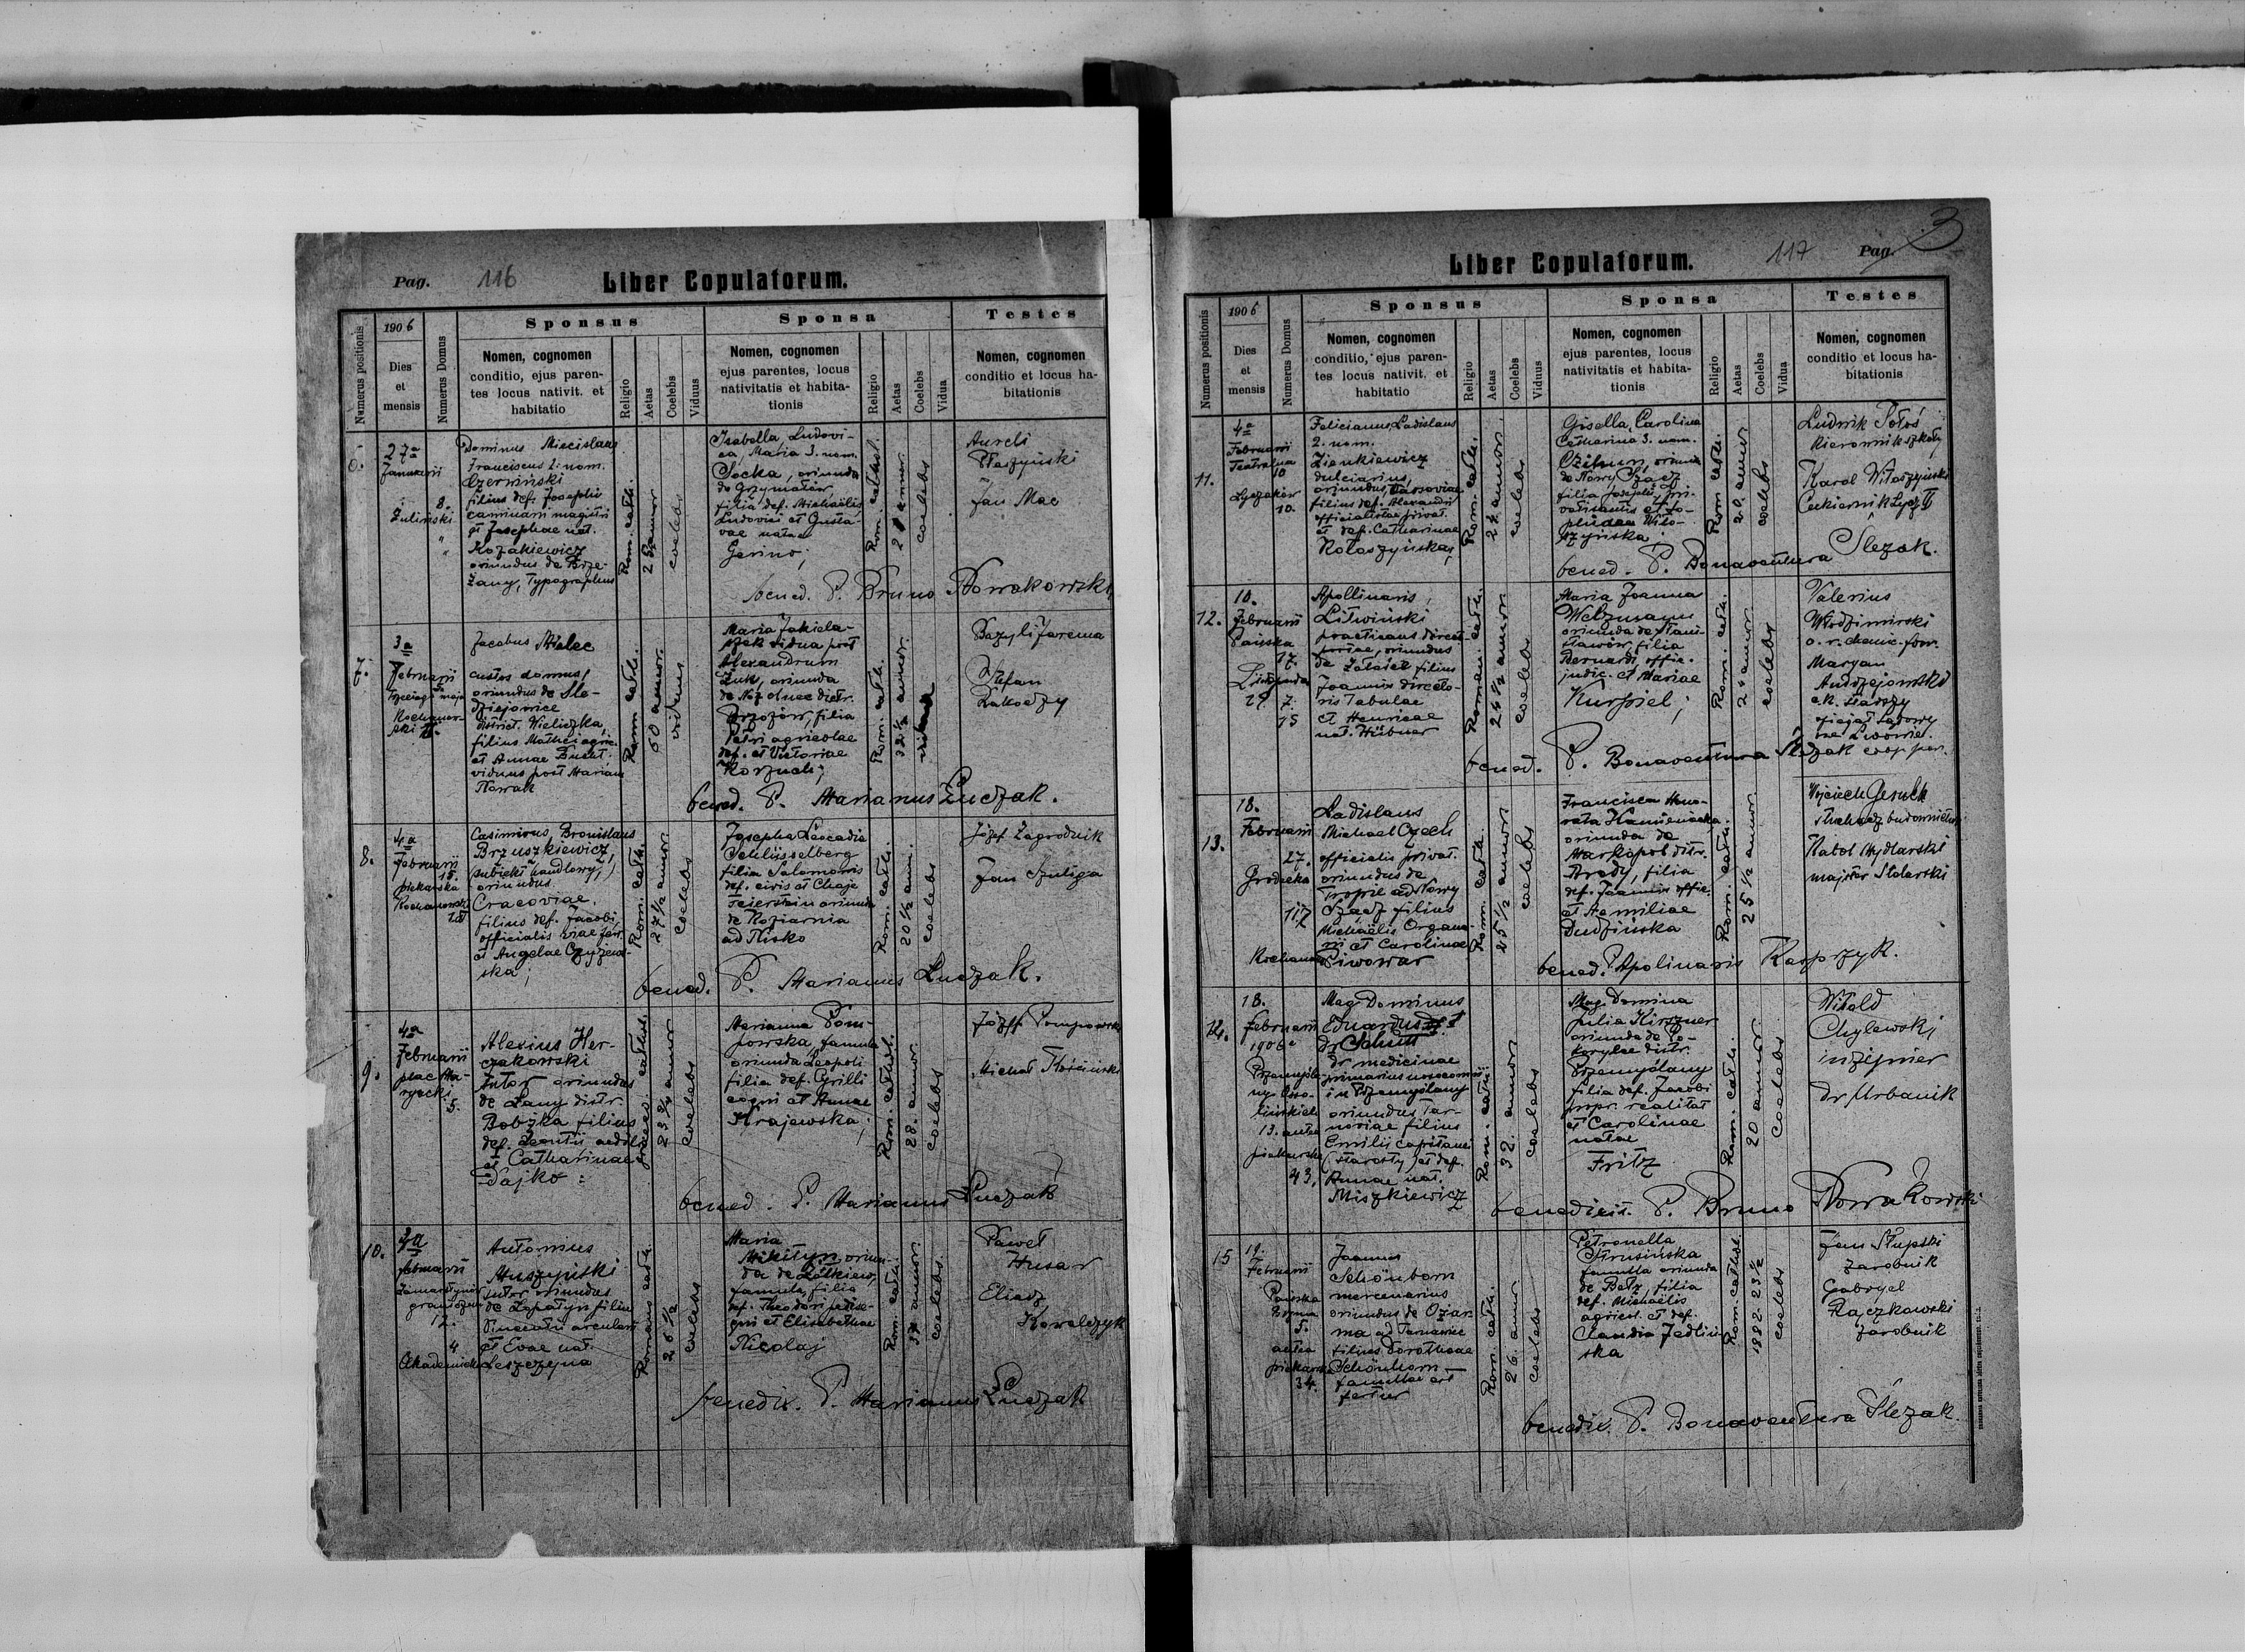 Pag. 116 Liber Copulatorum.
Numerus positionis
1906
Dies
et
mensis
Numerus Domus
Sponsus
Nomen, cognomen
conditio, ejus paren-
tes locus nativit. et
habitatio
Religio
Aetas
Coelebs
Viduus
Sponsa
Nomen, cognomen
ejus parentes, locus
nativitatis et habita-
tionis
Religio
Aetas
Coelebs
Vidua
Testes
Nomen, cognomen
conditio et locus ha-
bitationis
6.
27a
Januarii
8.
Zulinski
Dominus Miecislaus
Franciscus 2. nom.
Czerwiński
filius def. Josephi
caminarii magistri
et Josephae nat.
Kozakiewicz
oriundus de Brze-
żany, Typographus
Rom. cath.
annor
coelebs
Isabella, Ludovi-
ca, Maria 3. nom.
Socka, oriunda
de Grzymałów
filia def. Michaëlis
Ludovici et Gusta-
vae natae
Gerino;
Rom. cathol.
annor.
coelebs
Aureli
Płaszyński
Jan Mac
bened. P. Bruno Nowakowski
7.
3a
Februarii
Trzeciego maja
Kochanow-
ski
Jacobus Mielec
custos domus,
oriundus de Sle-
dziejowice
district. Wieliczka,
filius Mathei agric.
et Annae Buśat.
viduus post Mariam
Nowak
Rom. cath.
50 annor.
viduus
Maria Jakiela-
szek vidua post
Alexandrum
Żuk, oriunda
distr.
Brzozów, filia
Petri agricolae
def. et Victoriae
Korzuch;
Rom. cath.
32½ annor.
vidua
Bazyli Jarema
Stefan
Zakodzy
bened. P. Marianus Łuczak.
8.
4a
Februarii
15.
piekarska
Kochanowski
Casimirus, Bronislaus
Brzuszkiewicz,
subiekt handlowy,
oriundus
Cracoviae.
filius def. Jacobi
officialis viae ferr.
et Angelae Czyżew-
ska;
Rom. cath.
27½ annor
coelebs
Josepha Leocadia
Schlüsselberg
filia Salomonis
def. civis et Chaje
Feierstein oriunda
de Koziarnia
ad Nisko
Rom. cath.
20½ ann.
coelebs
Józef Zagrodnik
Jan Szuliga
bened. P. Marianus Łuczak.
9.
4a
Februarii
plac Ma-
ryacki
5.
Alexius Her-
czakowski
tutor oriundus
de Łany distr
Bobrka filius
def. Leontii aedil.
et Catharinae
Dajko:
graeco cathol.
23¾ annor
coelebs
Marianna Pom-
powska, famula
oriunda Leopoli
filia def. Cyrilli
coqui et Annae
Krajewska;
Rom. cathol.
28. annor.
coelebs
Józef Pompowski
Michał Kościński
bened. P. Marianus Łuczak
10.
4a
februarii
Zamarstynów
graniczna
12.
4
Akademicka
Antonius
Muszyński
tutor oriundus
de Łopatyn filius
Vincentii arcularii
et Evae nat.
Leszczyna
Romano cath.
26½
coelebs
Maria
Mikityn oriun-
da de Żółkiew,
famula, filia
def. Theodori
et Elisabethae
Nicolaj
Rom. cath.
annor.
coelebs.
Paweł
Husar
Eliasz
Kowalczyk
benedix. P. Marianus Łuczak
Liber Copulatorum. 117 Pag. 3
Numerus positionis
1906
Dies
et
mensis
Numerus Domus
Sponsus
Nomen, cognomen
conditio, ejus paren-
tes locus nativit. et
habitatio
Religio
Aetas
Coelebs
Viduus
Sponsa
Nomen, cognomen
ejus parentes, locus
nativitatis et habita-
tionis
Religio
Aetas
Coelebs
Vidua
Testes
Nomen, cognomen
conditio et locus ha-
bitationis
11.
4a
Februarii
Teatralna
10
Łyczaków
10.
Felicianus, Ladislaus
2. nom.
Zienkiewicz
dulciarius,
oriundus, Varsoviae
filius def. Alexandri
officialistae privat.
et def. Catharinae
Kołaszyńska;
Rom. cath.
annor.
coelebs
Gisella, Carolina
Catharina 3. nom.
oriunda
de Nowy Sącz
filia Josephi pri-
vatisantis et So-
phiae Wito-
szyńska;
Rom cath.
20. annor
coelebs
Ludwik Sołoś
kierownik szkoły
Karol Witoszyński
Cukiernik Łycz
bened. P. Bonaventura Ślezak.
12.
10.
februarii
Pańska
17.
Listopada
29 7.
15
Apollinaris
Litwiński
practicans direct.
postae, oriundus
de Załoźce filius
Joannis directo-
ris Tabulae
et Henricae
nat. Hübner
Roman. cath.
26½ annor
coelebs
Maria Joanna
Welzmanns
oriunda de Stani-
sławów, filia
Bernardi offic.
judic. et Mariae
Kurpiel;
Rom. cath.
annor
coelebs
Valerius
Włodzimirski
Maryan
Andrzejowski
ck. starszy
oficjał sądowy
we Lwowie.
bened. P. Bonaventura Ślezak coop. par.
13.
18.
Februarii
27.
Grodecka
117
Kochanow
Ladislaus
Michael Czech
officialis privat.
oriundus de
Tropie ad Nowy
Sącz filius
Michaëlis Organa-
rii et Carolinae
Piwowar
Rom. cath.
25½ annor
coelebs
Francisca Hono-
rata Kamieniecka
oriunda de
Markopol distr.
Brody, filia
def. Joannis offic.
et Aemiliae
Dudzińska
Rom. cath.
25½ annor.
Wojciech Gesuek
słuchacz budownictwa
Natol Mydlarski
majster Stolarski
bened. P. Apolinaris Kasprzyk.
14.
18.
februarii
1906
Przemyśla-
ny Osso-
lińskich
13. antea
piekarska
43,
Mag. Dominus
Eduardus
Dr Schutt
Dr medicinae
primarius nosocomii
in Przemyślany
oriundus Tar-
noviae filius
Emilii capitanei
(starosty) et def.
Annae nat.
Miszkiewicz
Rom. cath.
32. annor
coelebs
Mag. Domina
Julia Kirszner
oriunda de Po-
korylce distr.
Przemyślany
filia def. Jacobi
propr. realitat
et Carolinae
natae
Fritz
Rom. cath.
20 annor
coelebs
Witold
Chylewski
inżynier
dr Urbanik
benedixit. P. Bruno Nowakowski
15
19.
Februarii
Panieńska
5.
antea
piekarska
34.
Joannes
Schönborn
mercenarius
oriundus de Ożar-
ma ad Tarnawiec
filius Dorotheae
Schönborn
famulae ert
fertur
Rom. cath.
26. annor
coelebs
Petronella
Strusińska
famula oriunda
de Bełz, filia
def. Michaëlis
agricol. et def.
Claudia Jedliń-
ska
Rom. cathol.
1882. 23½
coelebs
Jan Słupski
zarobnik
Gabryel
Rączkowski
zarobnik
benedix. P. Bonaventura Ślezak.